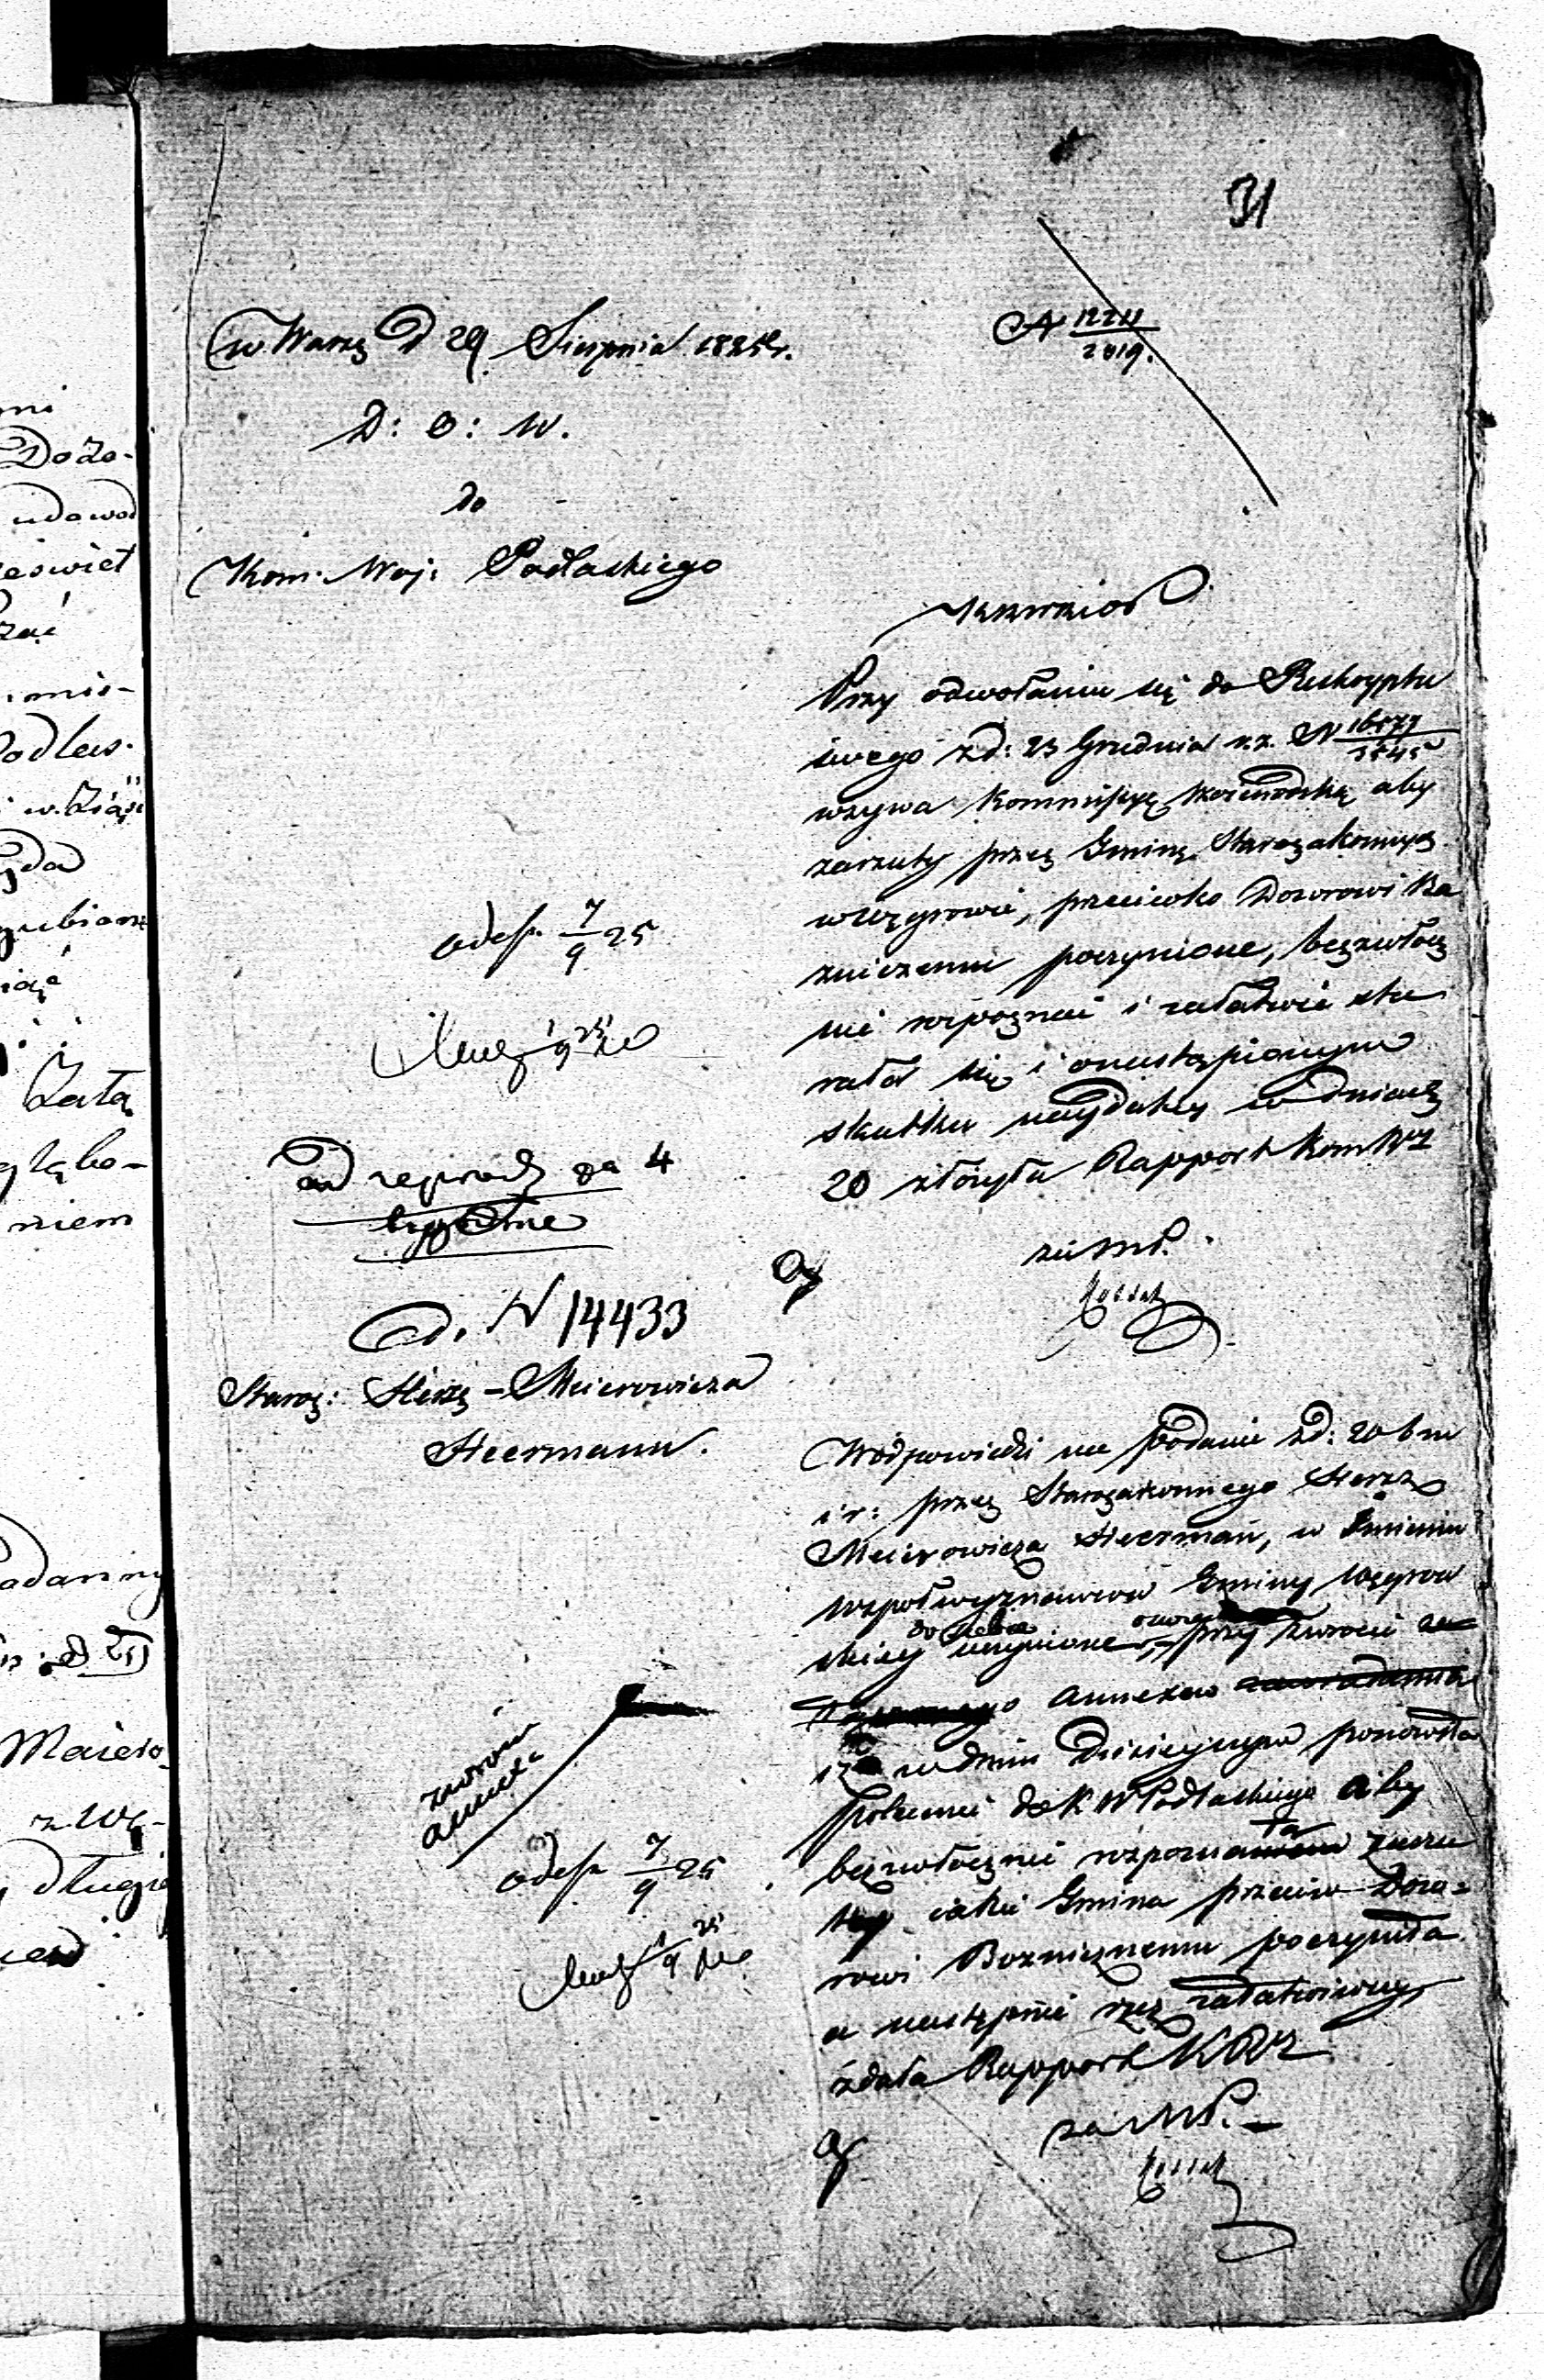 31
w Warsz D 29 Sierpnia 1825 r.
N 12211/2019.
D: O: W.
do
Kom: Woj: Podlaskiego
Przy odwołaniu się do Reskryptu
swego z d: 23 Grudnia r.z. N 16577/3545
wzywa Kommissyę Woiewodzką aby
zarzuty przez Gminę Starozakonnych
w Węgrowie, przeciwko Dozorowi Bo
źniczemu poczynione, bezzwłocz
nie rozpoznać i załatwić sta
rała się i o nastąpionym
skutku naydaley w dniach
20 złożyła Rapport Kom Rz
odesł. 7/9 25
ad reprod za 4
tygodnie
za M P.
ad. N 14433
Staroz: Herszę - Meierowicza
Heermann.
W odpowiedzi na podanie z d: 20 b m
i r: przez Starozakonnego Hersz
Meierowicza Heerman, w Imieniu
współwyznawców Gminy Węgrow
skiey do siebie uczynione, przy zwrocie
annexów
iż w dniu dzisieyszym ponowiła
polecenie do K W Podlaskiego aby
bezzwłocznie rozpoznała zarzu
ty iakie Gmina przeciw Dozo=
rowi Bożnicznemu poczyniła
a następnie rzecz załatwiwszy
zdała Rapport K Rz
zwrócić
annexa
odesł. 7/9 25
za M P. —